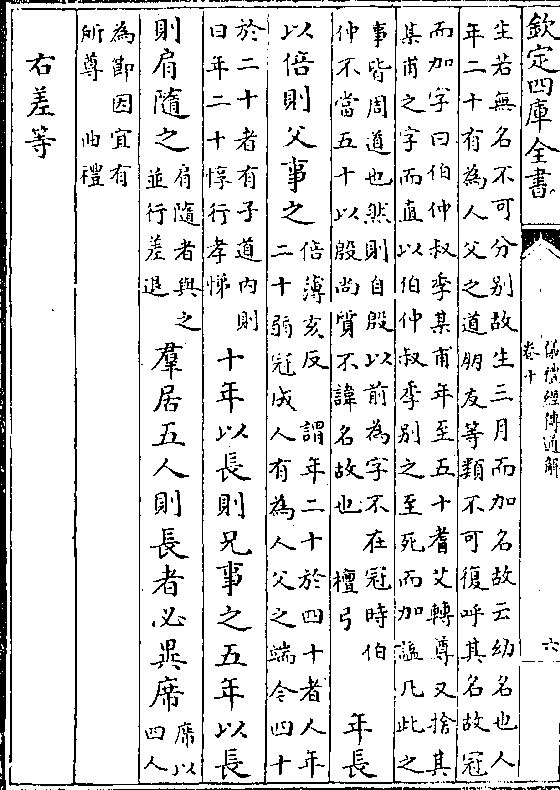 欽定四庫全書
儀禮經傳通解
卷十
六
生若無名不可分别故生三月而加名故云幼名也人
年二十有為人父之道朋友等類不可復呼其名故冠
而加字曰伯仲叔季某甫年至五十耆艾轉尊又捨其
某甫之字而直以伯仲叔季别之至死而加謚凡此之
事皆周道也然則自殷以前為字不在冠時伯
仲不當五十以殷尚質不諱名故也　檀弓
年長
以倍則父事之
倍薄亥反　謂年二十於四十者人年
二十弱冠成人有為人父之端今四十
於二十者有子道内則
曰年二十惇行孝悌
十年以長則兄事之五年以長
則肩隨之
肩隨者與之
並行差退
羣居五人則長者必異席
席以
四人
為節因宜有
所尊　曲禮
右差等